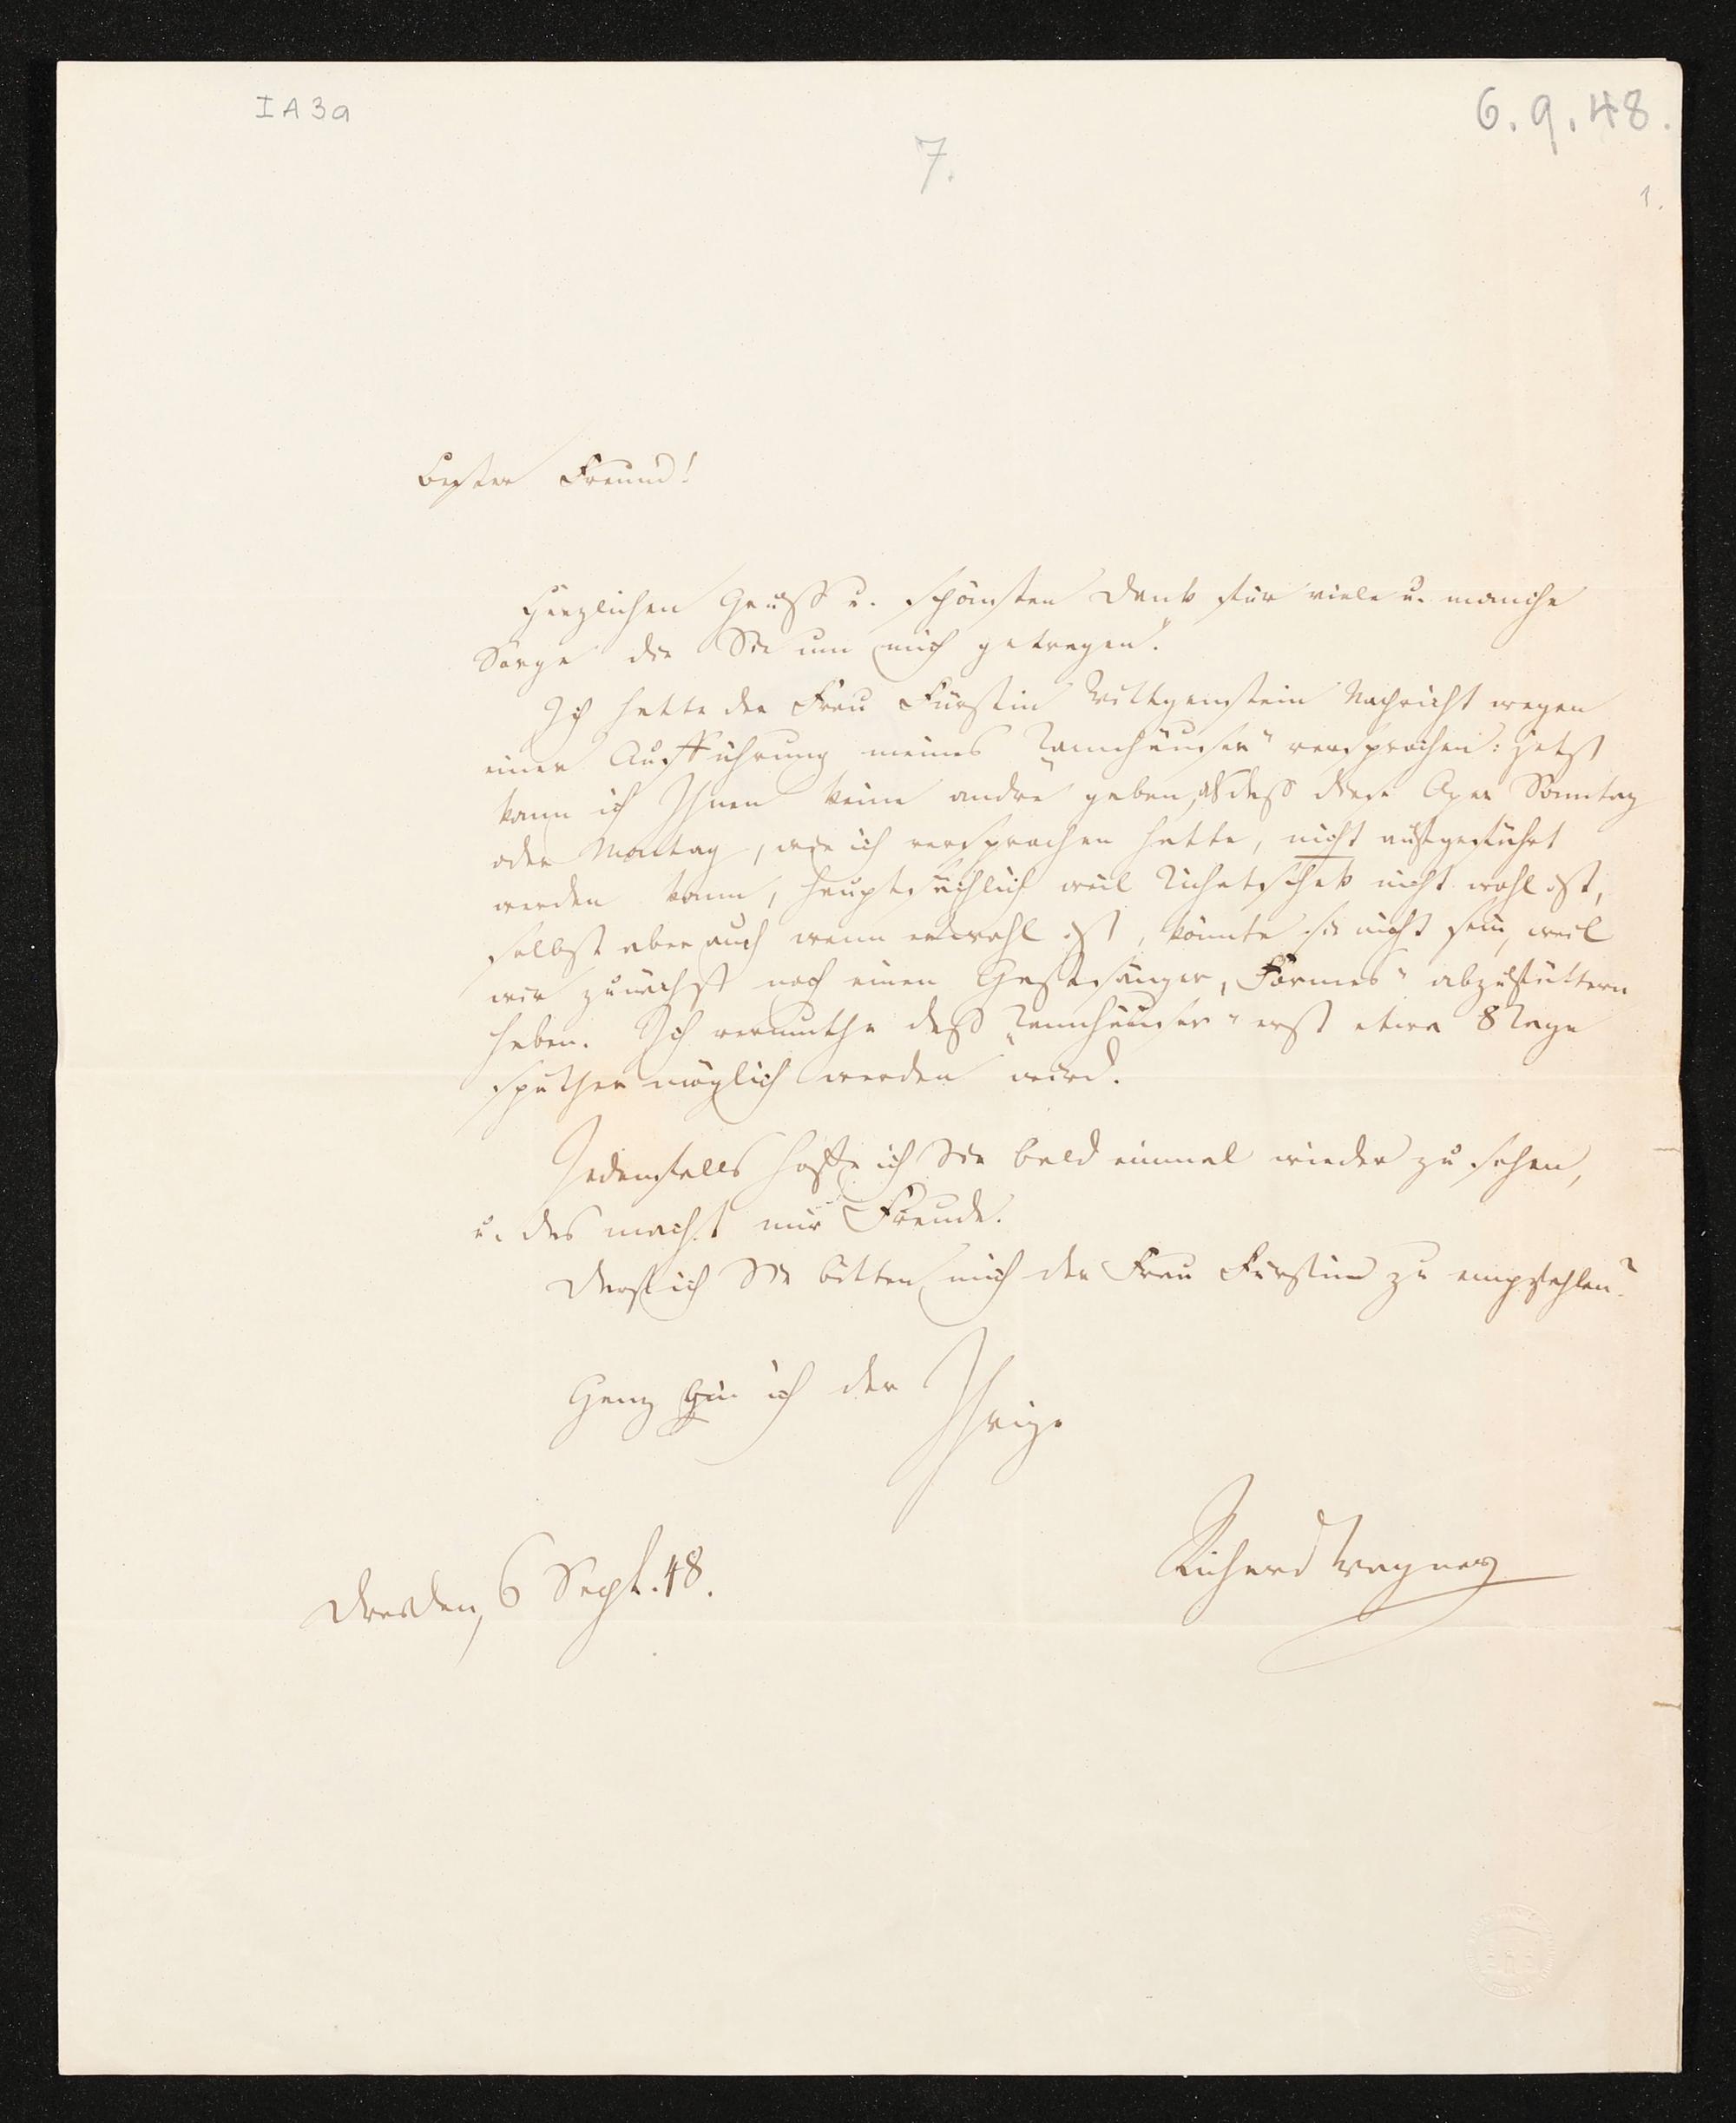 I A 3a
6.9.48.
7.
1.
Bester Freund!
Herzlichen Gruß u. schönsten Dank für viele u. manche
Sorge die Sie um mich getragen!
Ich hatte der Frau Fürstin Wittgenstein Nachricht wegen
einer Aufführung meines „Tannhäuser" versprochen: jetzt
kann ich Ihnen keine andre geben, als daß diese Oper Sonntag
oder Montag, wie ich versprochen hatte, nicht aufgeführt
werden kann, hauptsächlich weil Tichatschek nicht wohl ist,
selbst aber auch wenn er wohl ist, könnte sie nicht sein, weil
wir zunächst noch einen Gastsänger, „Formes" abzufüttern
haben. Ich vermuthe daß „Tannhäuser" erst etwa 8 Tage
später möglich werden wird.
Jedenfalls hoffe ich Sie bald einmal wieder zu sehen,
u. das macht mir Freude.
Darf ich Sie bitten mich der Frau Fürstin zu empfehlen?
Ganz bin ich der Ihrige
Richard Wagner
Dresden, 6 Sept. 48.